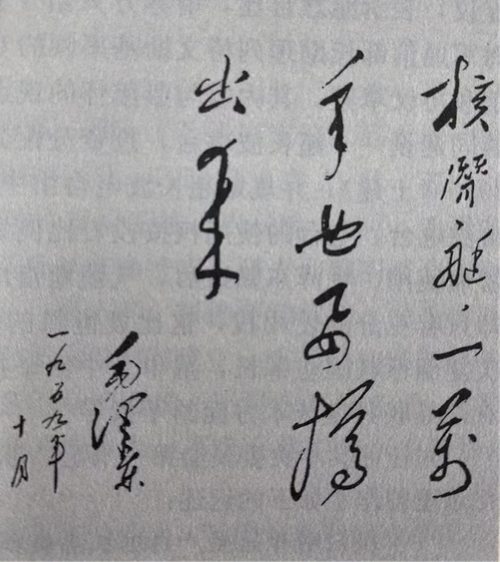 核潛艇,一萬
年也要搞
出来
毛澤東
一九五九年
十月